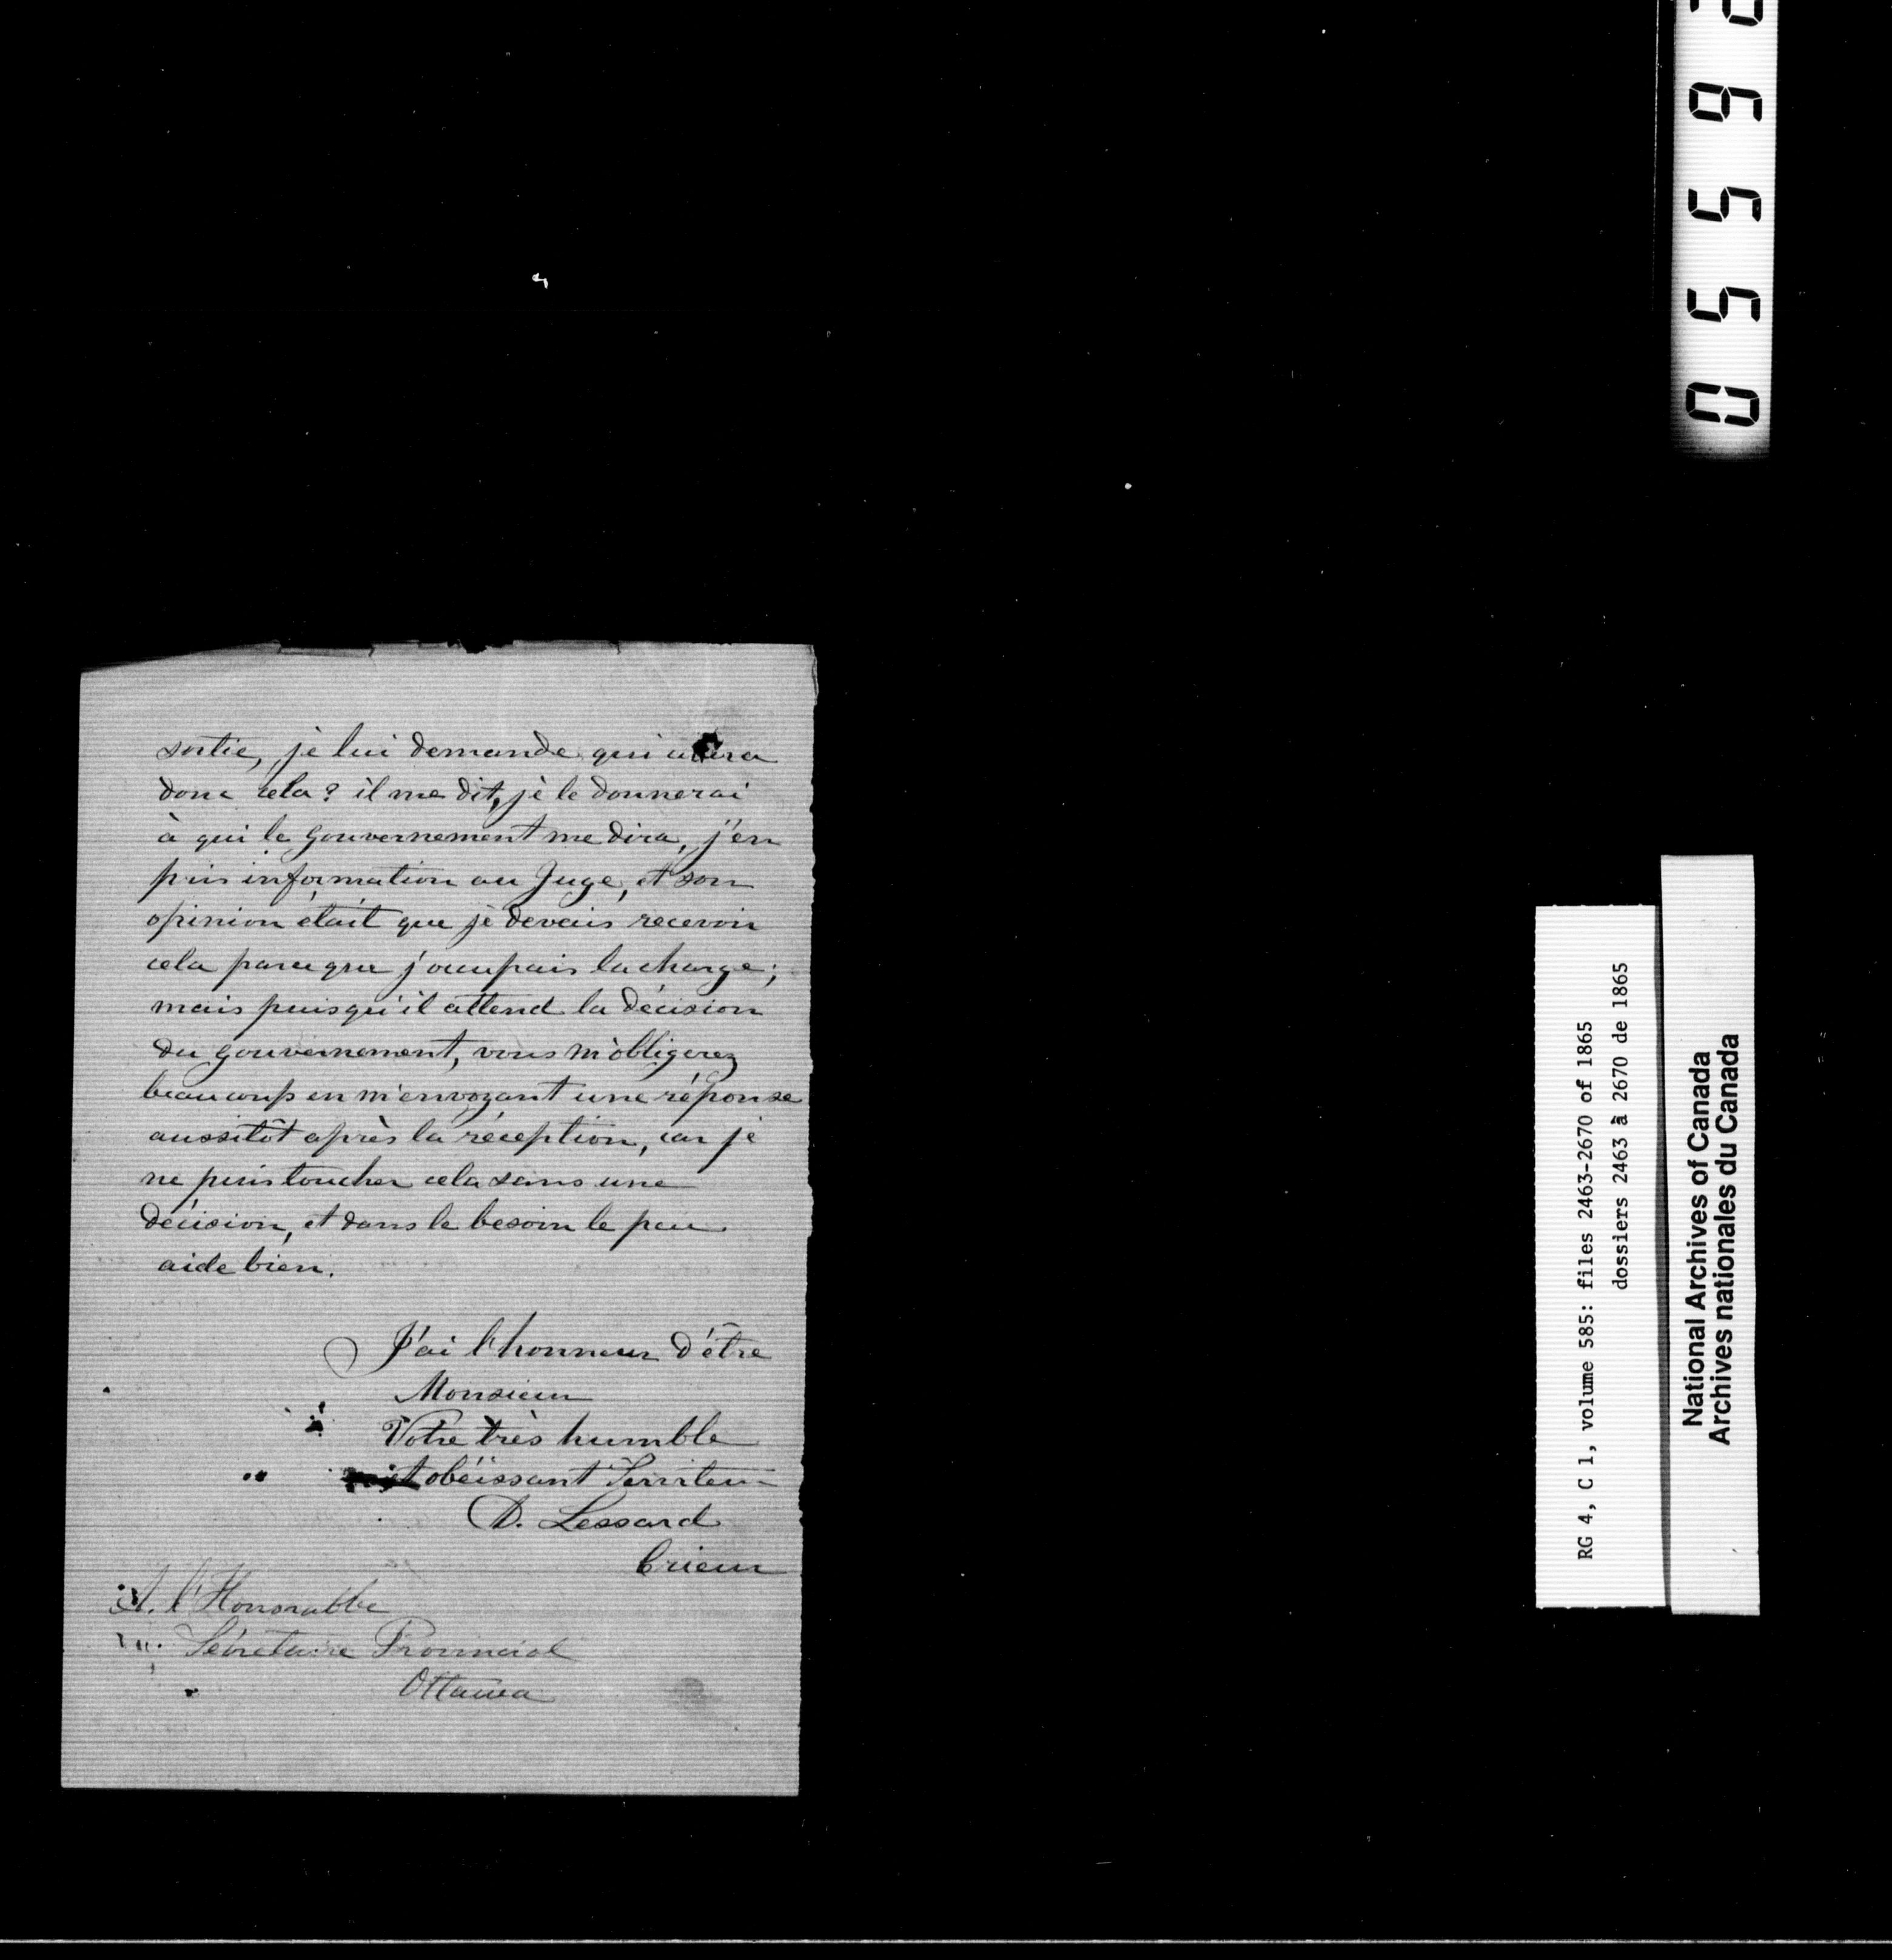 sortie, je lui demande qui aura
donc cela? il me dit, je le donnerai
à qui le gouvernement me dira, j'en
pris information au Juge, et son
opinion était que je devais recevoir
cela parceque j'occupais la charge;
mais puisqu'il attend la décision
du gouvernement, vous m'obligerez
beaucoup en m'envoyant une réponse
aussitôt après la réception, car je
ne puis toucher cela sans une
décision, et dans le besoin le peu
aide bien.
J'ai l'honneur d'être
Monsieur
Votre très humble
et obéissant Serviteur
D. Lessard
Crieur
A. l'Honorable
Sécretaire Provincial
Ottawa
0559
RG 4, C 1, volume 585: files 2463-2670 of 1865
dossiers 2463 à 2670 de 1865
National Archives of Canada
Archives nationales du Canada